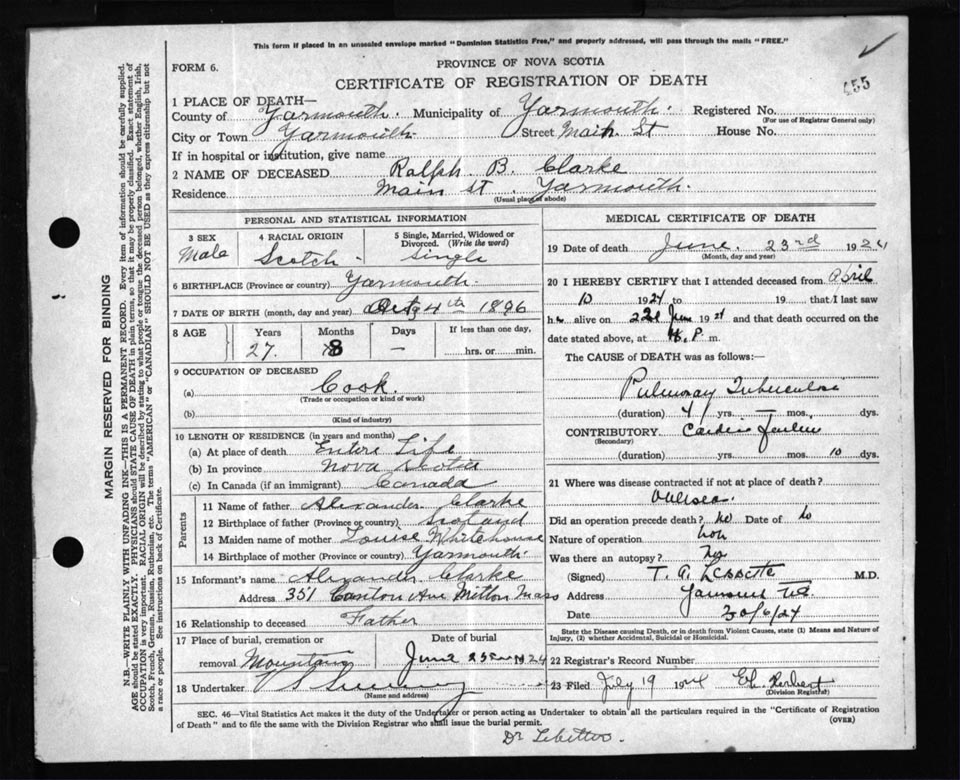 This form if placed in an unsealed envelope marked "Dominion Statistics Free," and properly addressed, will pass through the mails "FREE."
PROVINCE OF NOVA SCOTIA
FORM 6.
CERTIFICATE OF REGISTRATION OF DEATH
455
1 PLACE OF DEATH—
County of Yarmouth. Municipality of Yarmouth. Registered No.
(For use of Registrar General only)
City or Town Yarmouth Street Main St House No.
If in hospital or institution, give name
2 NAME OF DECEASED Ralph B. Clarke
Residence Main St. Yarmouth.
(Usual place of abode)
PERSONAL AND STATISTICAL INFORMATION
3 SEX Male
4 RACIAL ORIGIN Scotch -
5 Single, Married, Widowed or Divorced. (Write the word) Single
6 BIRTHPLACE (Province or country) Yarmouth.
7 DATE OF BIRTH (month, day and year) Oct 4th 1896
8 AGE Years Months Days If less than one day,
27. 8 — hrs. or min.
9 OCCUPATION OF DECEASED
(a) Cook.
(Trade or occupation or kind of work)
(b)
(Kind of industry)
10 LENGTH OF RESIDENCE (in years and months)
(a) At place of death Entire Life
(b) In province Nova Scotia
(c) In Canada (if an immigrant) Canada
Parents
11 Name of father Alexander Clarke
12 Birthplace of father (Province or country) Scotland
13 Maiden name of mother Louise Whitehouse
14 Birthplace of mother (Province or country) Yarmouth.
15 Informant's name Alexander Clarke
Address 351 Canton Ave Milton Mass
16 Relationship to deceased Father
17 Place of burial, cremation or removal Mountain Date of burial June 25 1924
18 Undertaker
(Name and address)
MEDICAL CERTIFICATE OF DEATH
19 Date of death June 23rd 1924
(Month, day and year)
20 I HEREBY CERTIFY that I attended deceased from April
10 1924 to 19 that I last saw
h alive on 22 June 1924 and that death occurred on
date stated above, at P. m.
The CAUSE of DEATH was as follows:
Pulmonary Tuberculosis
(duration) 4 yrs. — mos. dys.
CONTRIBUTORY Cardiac Failure
(Secondary)
(duration) yrs. mos. 10 dys.
21 Where was disease contracted if not at place of death?
Oversea.
Did an operation precede death? no Date of no
Nature of operation non
Was there an autopsy? no
(Signed) T. A. M.D.
Address Yarmouth
Date 30/6/24
State the Disease causing Death, or in death from Violent Causes, state (1) Means and Nature of Injury, (2) whether Accidental, Suicidal or Homicidal.
22 Registrar's Record Number
23 Filed July 19 1924 Herbert
(Division Registrar)
SEC. 46—Vital Statistics Act makes it the duty of the Undertaker or person acting as Undertaker to obtain all the particulars required in the "Certificate of Registration
of Death" and to file the same with the Division Registrar who shall issue the burial permit. (OVER)
Dr
MARGIN RESERVED FOR BINDING
N.B.—WRITE PLAINLY WITH UNFADING INK—THIS IS A PERMANENT RECORD. Every item of information should be carefully supplied.
AGE should be stated EXACTLY. PHYSICIANS should STATE CAUSE OF DEATH in plain terms, so that it may be properly classified. Exact statement of
OCCUPATION is very important. RACIAL ORIGIN will be described by stating to what people or tongue the deceased person belonged, whether English, Irish,
Scotch, French, German, Russian, Ruthenian, etc. The terms "AMERICAN" or "CANADIAN" SHOULD NOT BE USED as they express citizenship but not
a race or people. See instructions on back of Certificate.